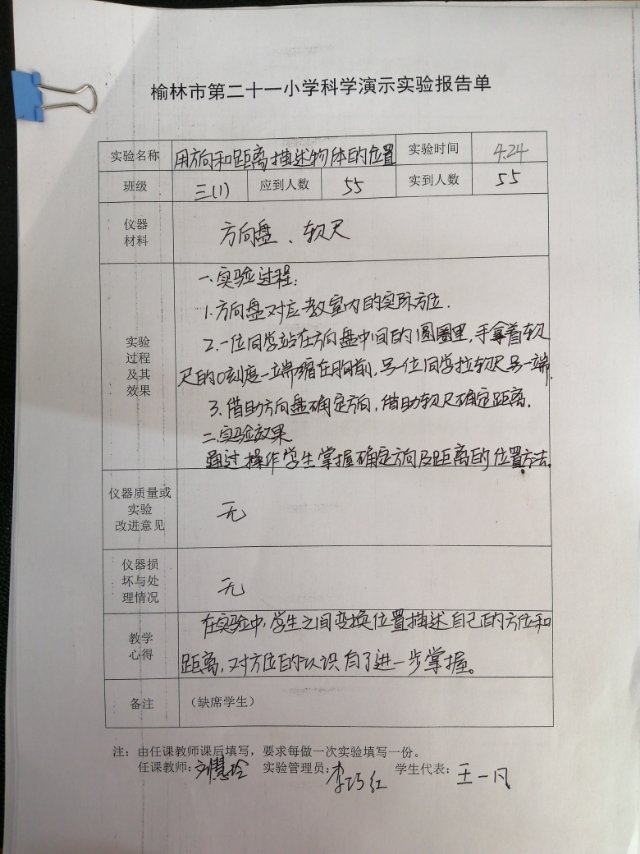 榆林市第二十一小学科学演示实验报告单
实验名称 用方向和距离描述物体的位置 实验时间 4.24
班级 三(1) 应到人数 55 实到人数 55
仪器
材料
方向盘、软尺
实验
过程
及其
效果
一.实验过程:
1.方向盘对应教室内的实际方位.
2.一位同学站在方向盘中间的圆圈里,手拿着软
尺的0刻度一端握在胸前,另一位同学拉软尺另一端.
3.借助方向盘确定方向,借助软尺确定距离.
二.实验效果
通过操作学生掌握确定方向及距离的位置方法.
仪器质量或
实验
改进意见
无
仪器损
坏与处
理情况
无
教学
心得
在实验中,学生之间变换位置描述自己的方位和
距离,对方位的认识有了进一步掌握。
备注 (缺席学生)
注:由任课教师课后填写,要求每做一次实验填写一份。
任课教师:刘慧玲 实验管理员:李巧红 学生代表:王一凡